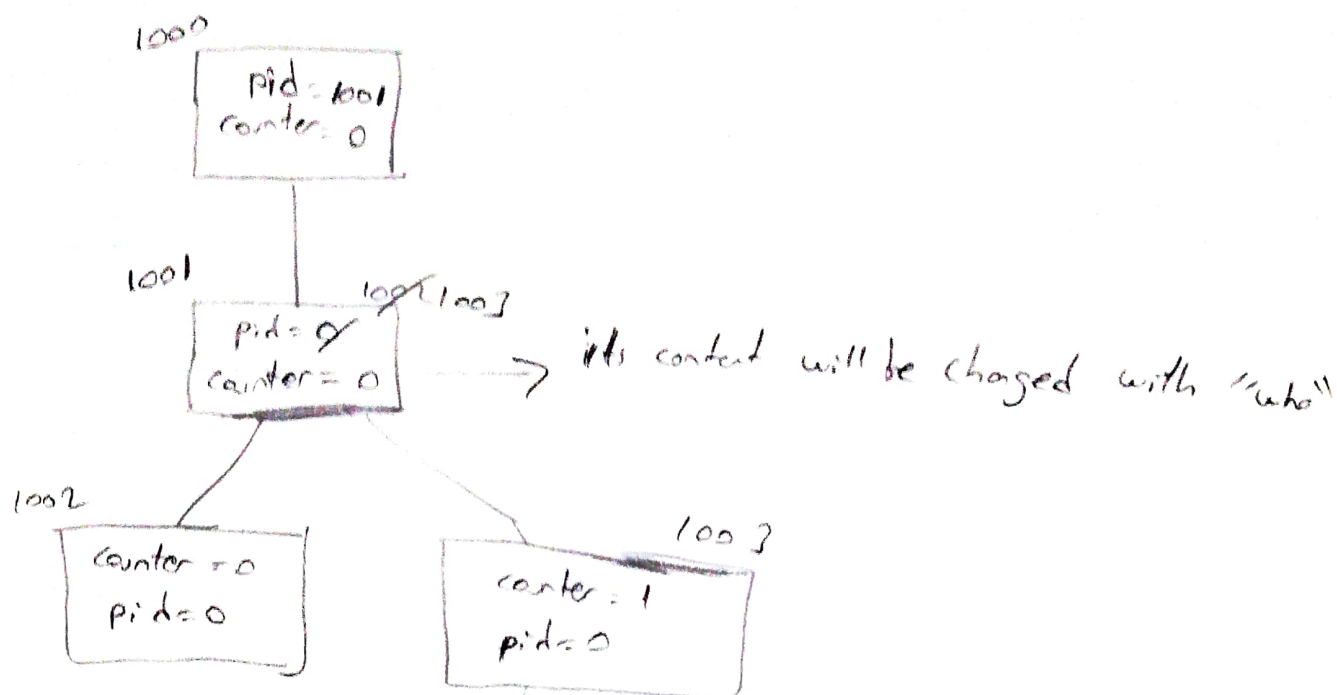 1000
pid=1001
counter=0
1001
1002 1003
pid=0
counter=0
its content will be changed with "who"
1002
counter=0
pid=0
1003
counter=1
pid=0